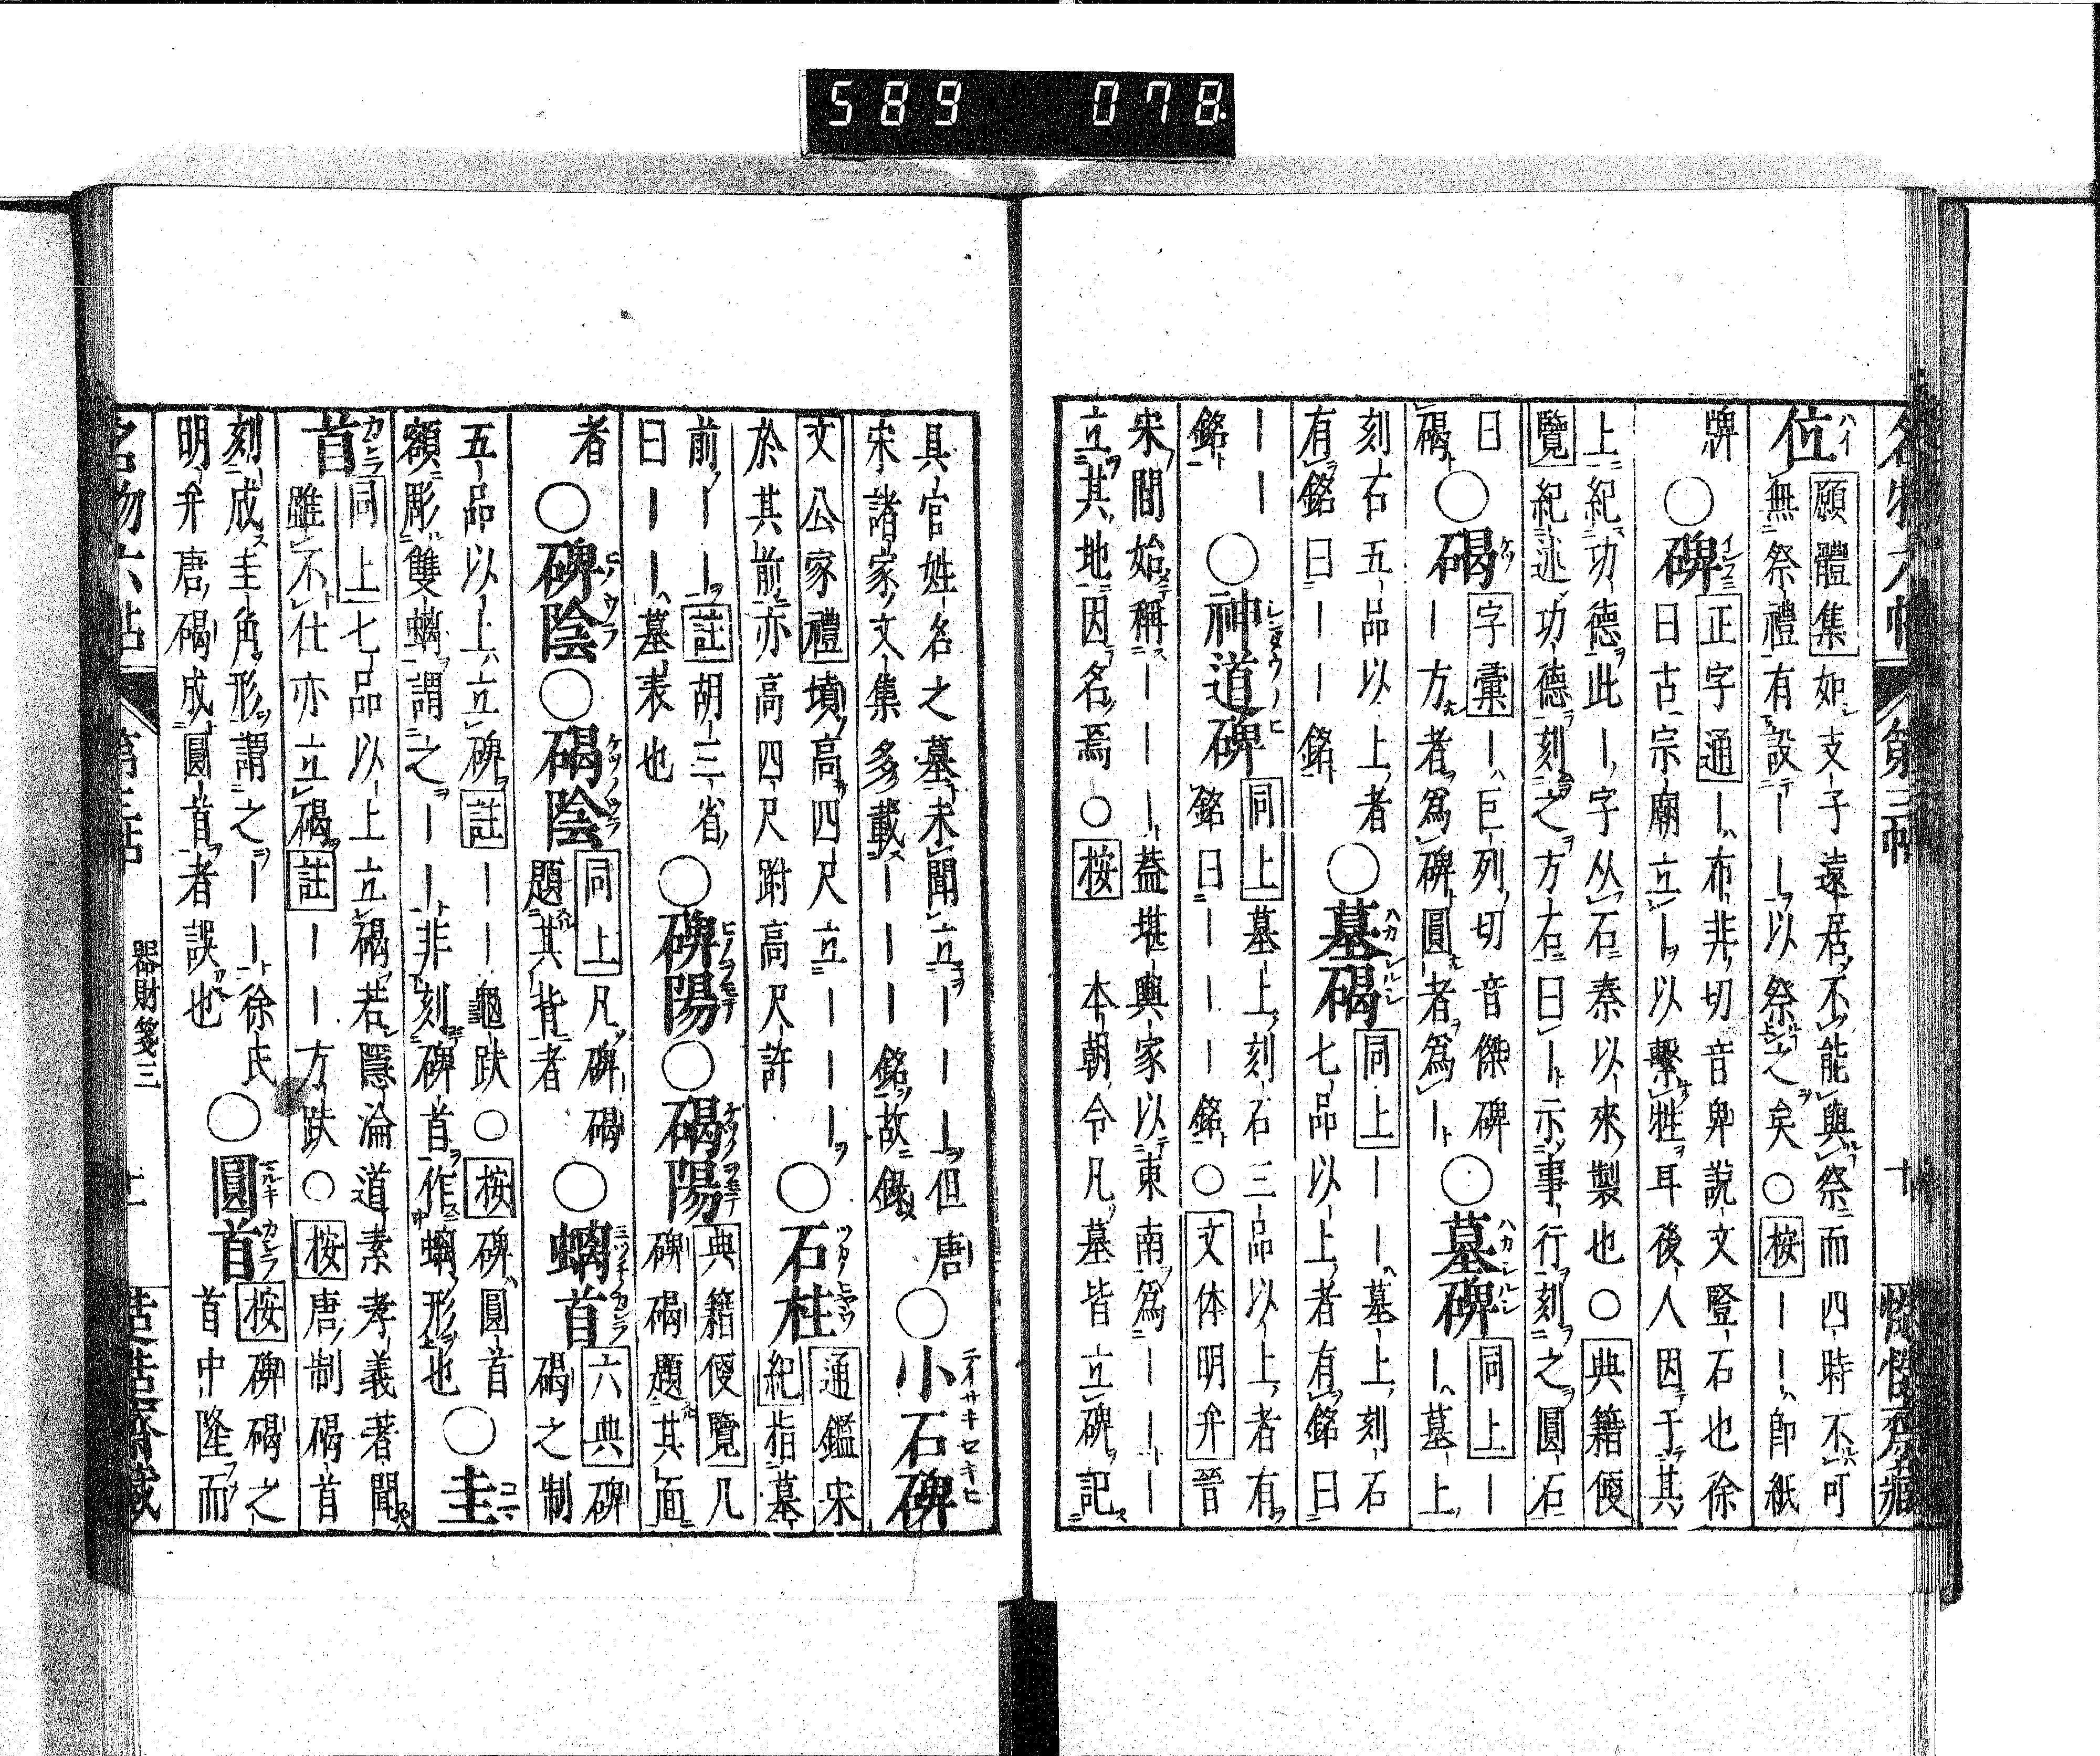 589 078
名物六帖 第三帖 十
位 願體集如支子遠居不能與祭而四時不可
無祭禮有設――以祭之矣○按――即紙
牌
○碑 正字通―布非切音卑說文豎石也徐
曰古宗廟立―以繫牲耳後人因于其
上紀功德此―字从石秦以來製也○典籍便
覽紀述功德刻之方石曰―示事行刻之圓石
曰
碣
○碣 字彙―巨列切音傑碑
―方者爲碑圓者爲―
○墓碑 同上―
―墓上
刻石五品以上者
有銘曰――銘
○墓碣 同上――墓上刻石
七品以上者有銘曰
――
銘
○神道碑 同上墓上刻石三品以上者有
銘曰―――銘○文体明弁晉
宋間始稱―――蓋堪輿家以東南爲――
立其地因名焉○按 本朝令凡墓皆立碑記
具官姓名之墓未聞立――――但唐
宋諸家文集多載―――銘故錄
○小石碑
文公家禮墳高四尺立―――
於其前亦高四尺跗高尺許
○石柱 通鑑宋
紀指墓
前――註胡三省
曰――墓表也
○碑陽○碣陽 典籍便覽凡
碑碣題其面
者
○碑陰○碣陰 同上凡碑碣
題其背者
○螭首 六典碑
碣之制
五品以上立碑註――龜趺○按碑圓首
額彫雙螭謂之――非刻碑首作螭形也
○圭
首 同上七品以上立碣若隱淪道素孝義著聞
雖不仕亦立碣註――方趺○按唐制碣首
刻成圭角形謂之――徐氏
明弁唐碣成圓首者誤也
○圓首 按碑碣之
首中隆而
名物六帖 第三帖 器財箋三 十一